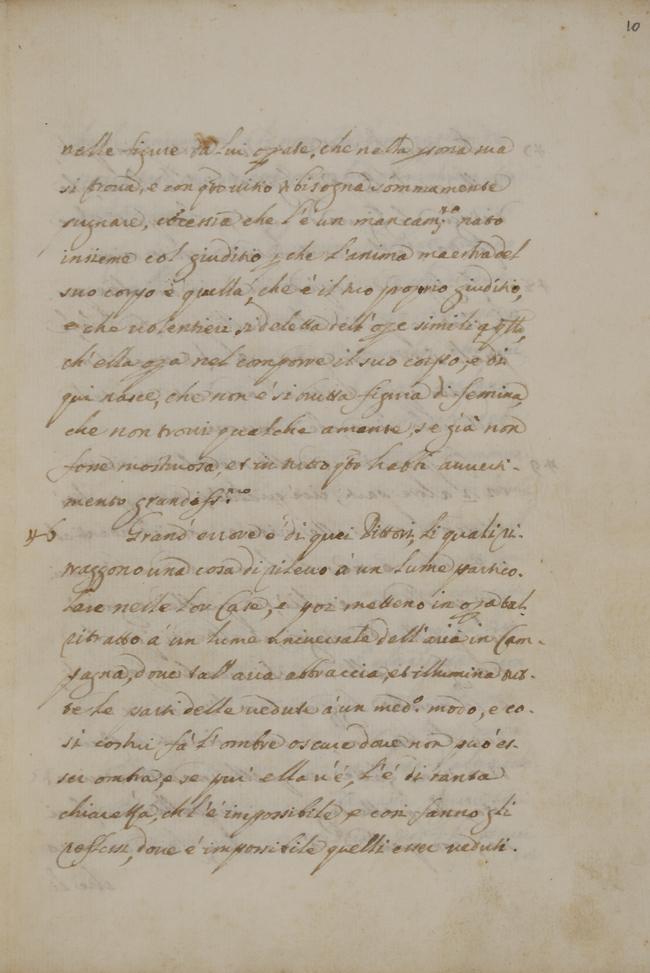 10
nelle figure da lui oprate, che nella prona sua
si trova, e con qto vitio ti bisogna sommamente
pugnare, che l'è un mancam.to nato
insieme col giuditio, pche l'anima maestra del
suo corpo è quella, che è il tuo proprio giuditio,
e che volentieri si deletta dell'opre simili a qlle,
ch'ella opra nel comporre il suo corpo, e di
qui nasce, che non è si brutta figura di femina,
che non trovi qualche amante, se già non
fosse mostruosa, et in tutto qto habbi averti-
mento grandiss.mo
46 Grand'errore è di quei Pittori, li quali ri-
traggono una cosa di rilievo à un lume partico-
lare nelle lor Case, e poi metteno in opra tal
ritratto à un lume universale dell'aria in Cam-
pagna, dove tall'aria abbraccia, et illumina tut-
te le parti delle vedute à un med.o modo, e co-
si costui fà l'ombre oscure dove non può es-
ser ombra, e se pur ella v'è, l'è di tanta
chiarezza, ch'l'è impossibile, e cosi fanno gli
reflessi, dove è impossibile quelli esser veduti.